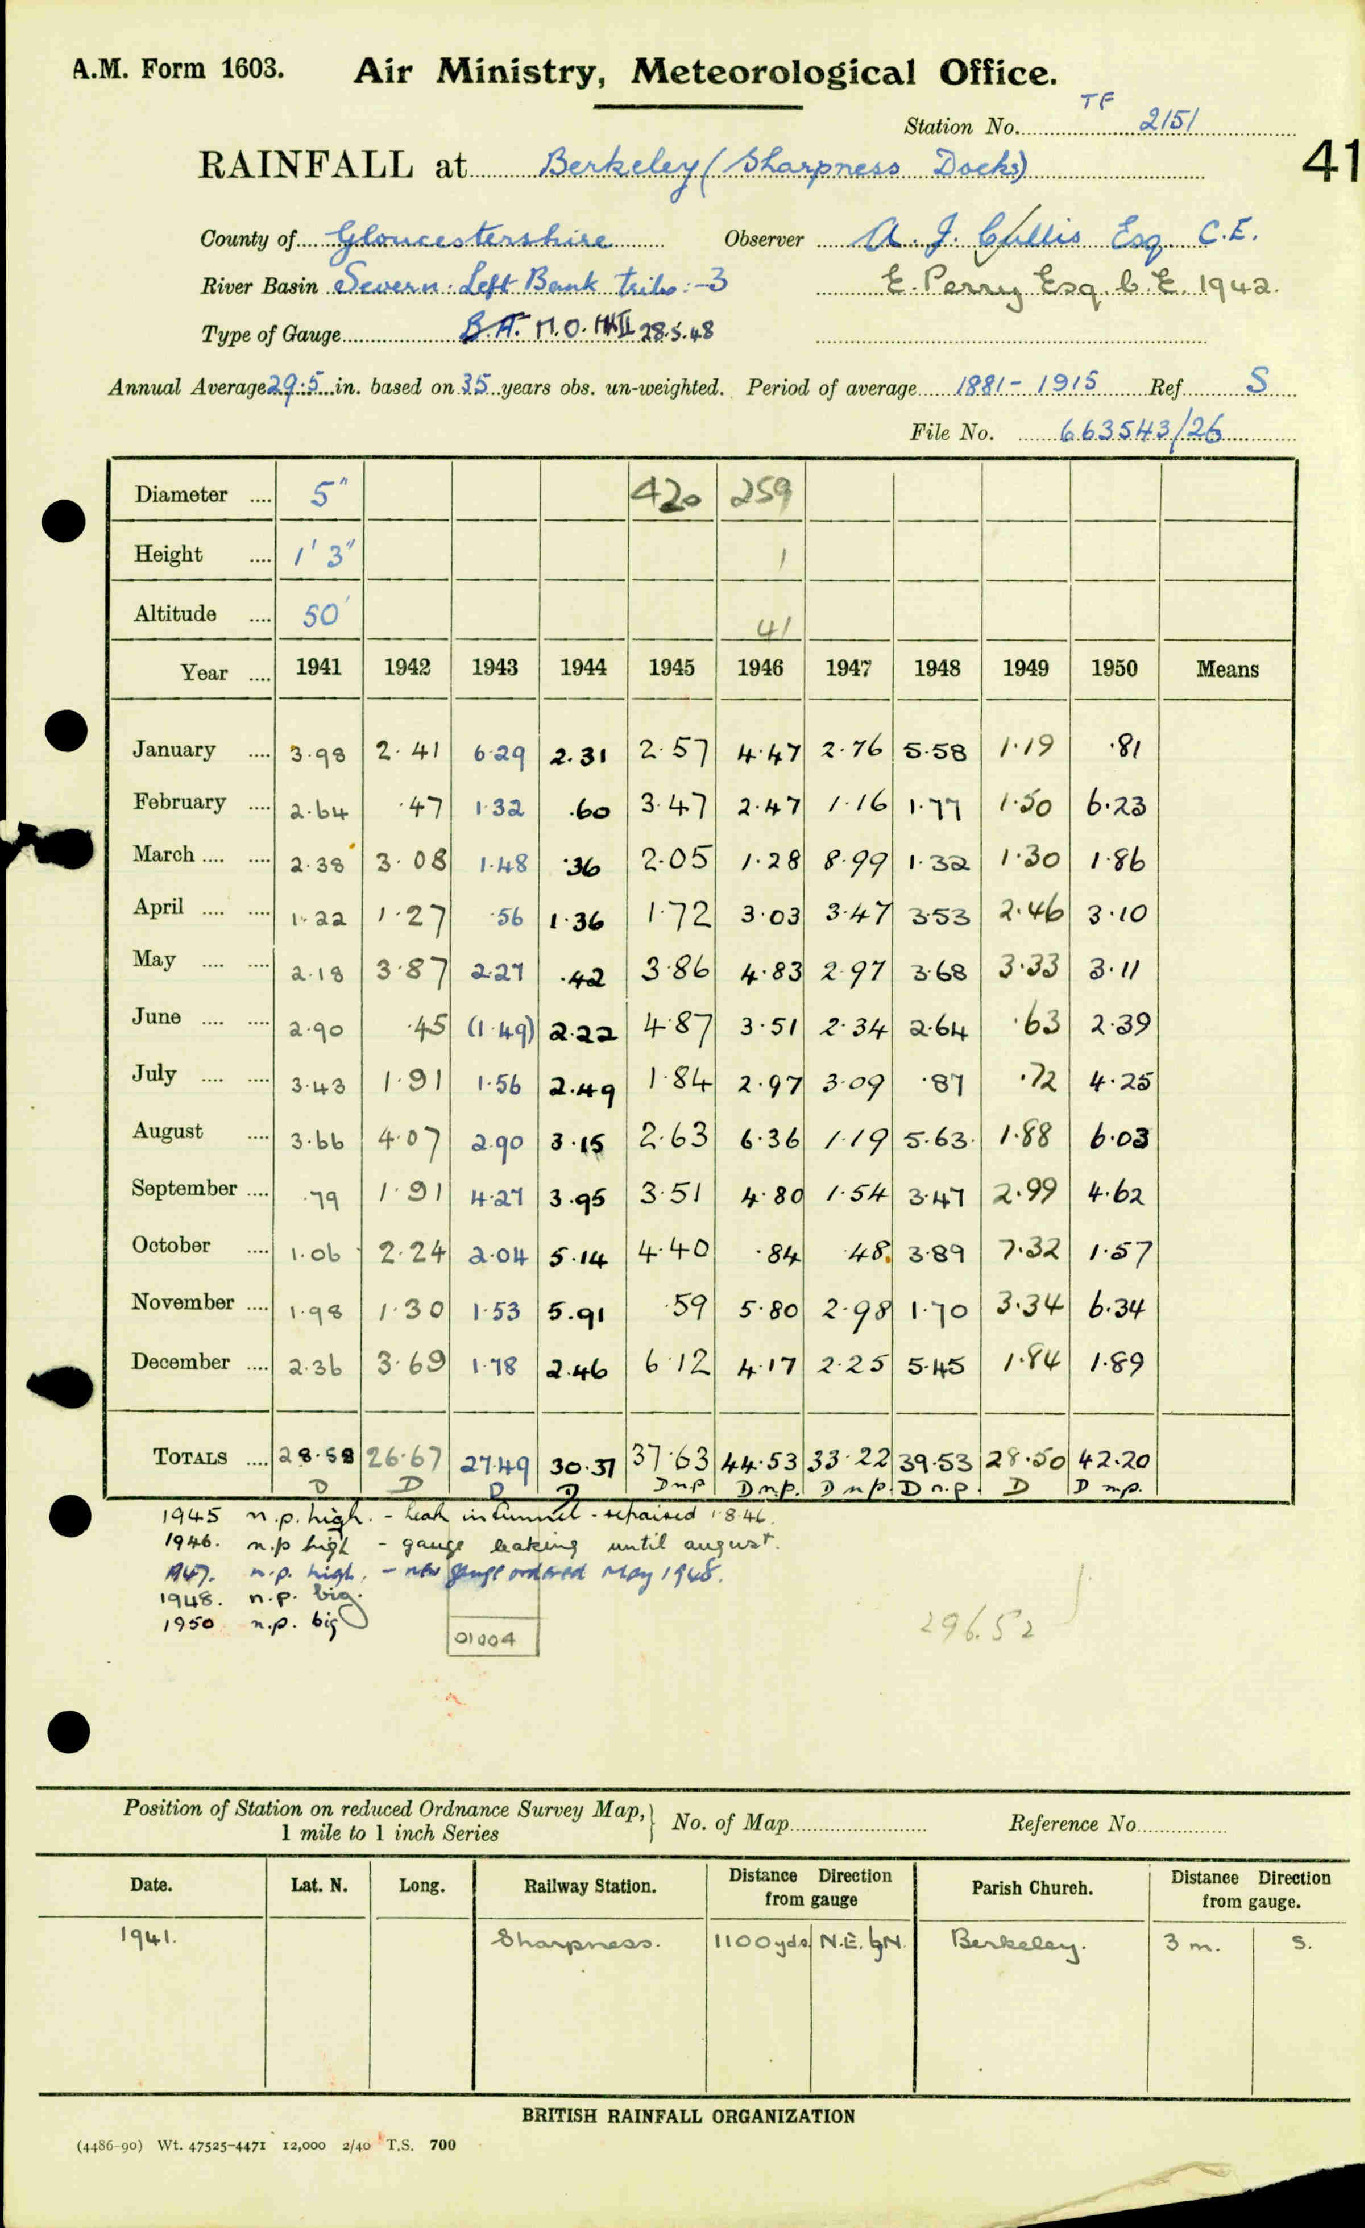 A.M. Form 1603. Air Ministry, Meteorological Office.
Station No. TF 2151
41
RAINFALL at Berkeley (Sharpness Docks)
County of Gloucestershire Observer A. J. Cullis Esq C.E.
River Basin Severn. Left Bank tribs:-3 E. Perry Esq. C. E. 1942.
Type of Gauge B.A. M.O. MkII 28.5.48
Annual Average 29.5 in. based on 35 years obs. un-weighted. Period of average 1881-1915 Ref S
File No. 663543/26
Diameter .... 5" 420 259
Height .... 1' 3" 1
Altitude .... 50' 41
Year .... 1941 1942 1943 1944 1945 1946 1947 1948 1949 1950 Means
January .... 3.98 2.41 6.29 2.31 2.57 4.47 2.76 5.58 1.19 .81
February .... 2.64 .47 1.32 .60 3.47 2.47 1.16 1.77 1.50 6.23
March .... .... 2.38 3.08 1.48 .36 2.05 1.28 8.99 1.32 1.30 1.86
April .... .... 1.22 1.27 .56 1.36 1.72 3.03 3.47 3.53 2.46 3.10
May .... .... 2.18 3.87 2.27 .42 3.86 4.83 2.97 3.68 3.33 3.11
June .... .... 2.90 .45 (1.49) 2.22 4.87 3.51 2.34 2.64 .63 2.39
July .... .... 3.43 1.91 1.56 2.49 1.84 2.97 3.09 .87 .72 4.25
August .... 3.66 4.07 2.90 3.15 2.63 6.36 1.19 5.63 1.88 6.03
September .... .79 1.91 4.27 3.95 3.51 4.80 1.54 3.47 2.99 4.62
October .... 1.06 2.24 2.04 5.14 4.40 .84 .48 3.89 7.32 1.57
November .... 1.98 1.30 1.53 5.91 .59 5.80 2.98 1.70 3.34 6.34
December .... 2.36 3.69 1.78 2.46 6.12 4.17 2.25 5.45 1.84 1.89
TOTALS .... 28.58 26.67 27.49 30.37 37.63 44.53 33.22 39.53 28.50 42.20
D D D D D n p D n.p. D n p. D n.p. D D n.p.
1945 n.p. high. - leak in funnel - repaired 1.8.46.
1946. n.p high - gauge leaking until august.
1947. n.p. high. - new gauge ordered May 1948.
1948. n.p. big.
1950 n.p. big
01004
296.52
Position of Station on reduced Ordnance Survey Map,
1 mile to 1 inch Series
No. of Map Reference No.
Date. Lat. N. Long. Railway Station. Distance Direction from gauge Parish Church. Distance Direction from gauge.
1941. Sharpness. 1100 yds. N.E. by N. Berkeley. 3 m. S.
BRITISH RAINFALL ORGANIZATION
(4486-90) Wt. 47525-4471 12,000 2/40 T.S. 700